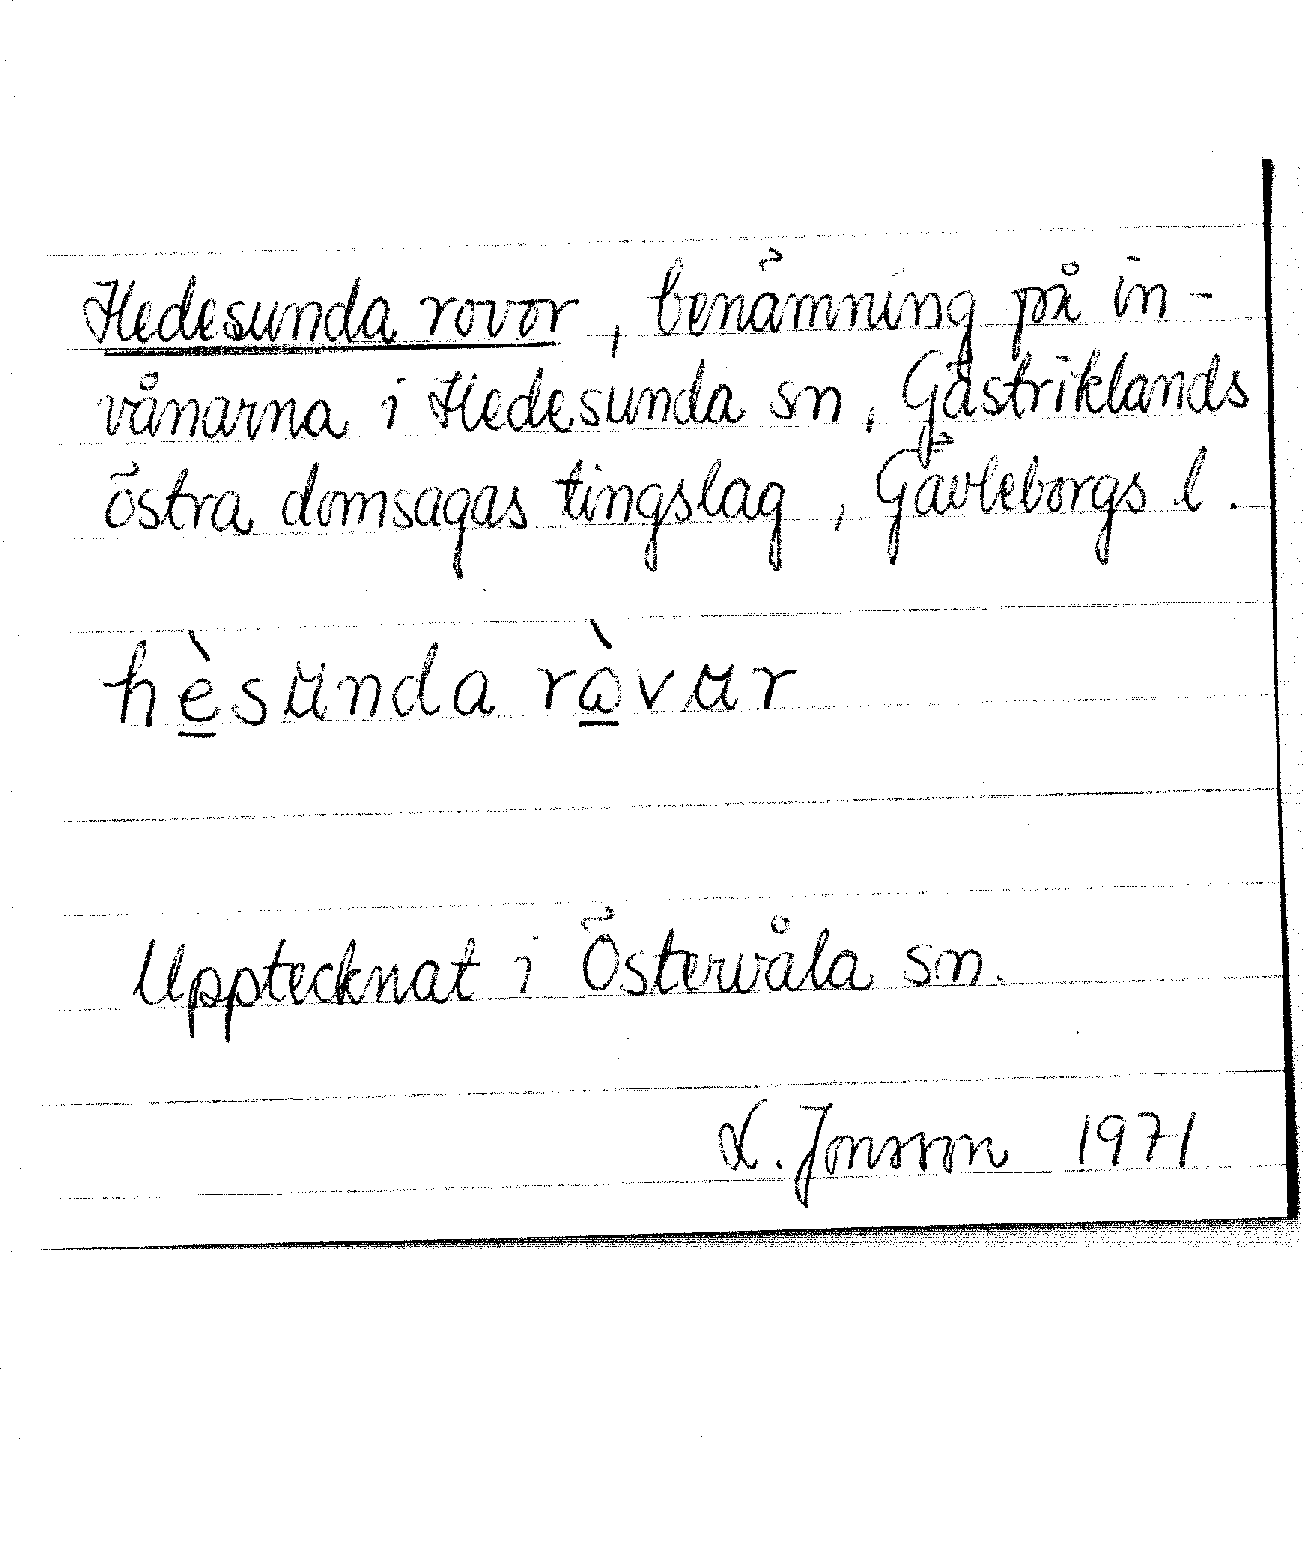 Hedesunda rovor, benämning på in-
vånarna i Hedesunda sn, Gästriklands
östra domsagas tingslag, Gävleborgs l.
hèsunda ròvur
Upptecknat i Östervåla sn.
L. Jonsson 1971